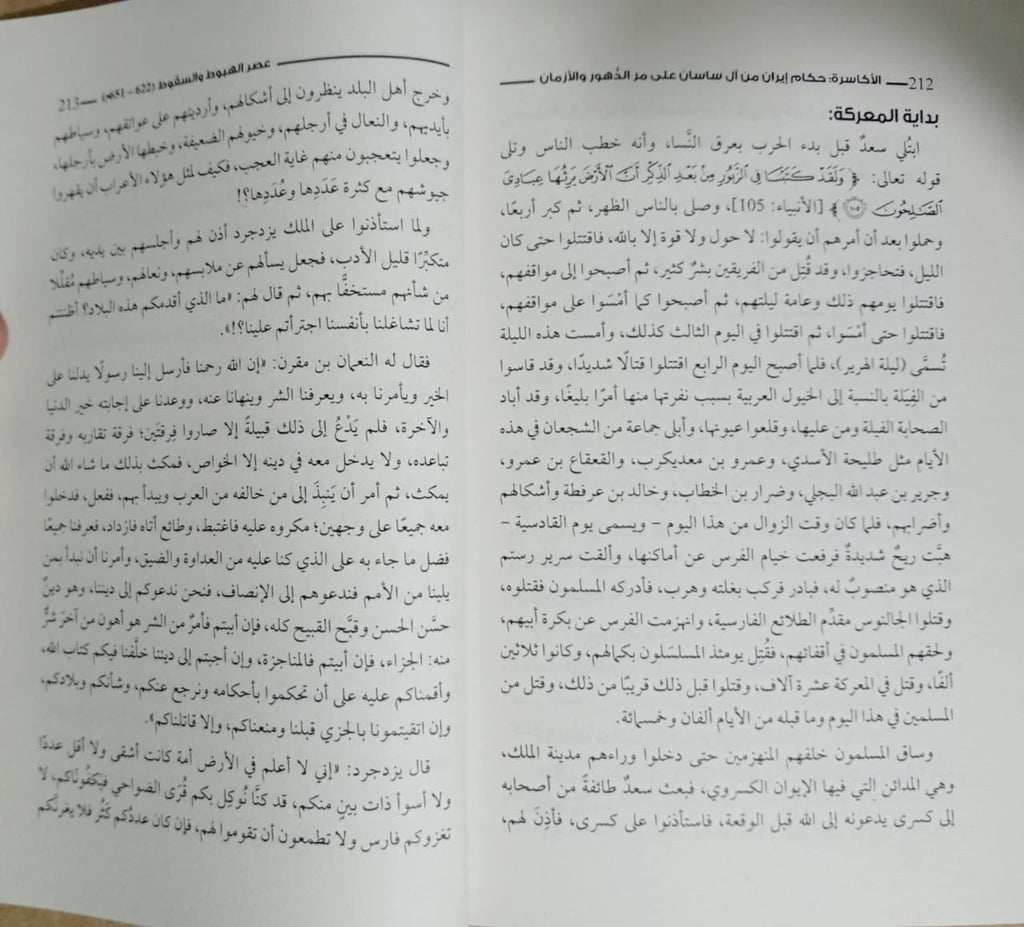 212 الأكاسرة: حكام إيران من آل ساسان على مر الدُّهور والأزمان
بداية المعركة:
ابتُلي سعدٌ قبل بدء الحرب بعرق النَّسا، وأنه خطب الناس وتلى
قوله تعالى: ﴿وَلَقَدْ كَتَبْنَا فِي الزَّبُورِ مِنْ بَعْدِ الذِّكْرِ أَنَّ الْأَرْضَ يَرِثُهَا عِبَادِيَ
الصَّالِحُونَ ١٠٥﴾ [الأنبياء: 105]، وصلى بالناس الظهر، ثم كبر أربعًا،
وحملوا بعد أن أمرهم أن يقولوا: لا حول ولا قوة إلا بالله، فاقتتلوا حتى كان
الليل، فتحاجزوا، وقد قُتِل من الفريقين بشرٌ كثير، ثم أصبحوا إلى مواقفهم،
فاقتتلوا يومهم ذلك وعامة ليلتهم، ثم أصبحوا كما أمْسَوا على مواقفهم،
فاقتتلوا حتى أمْسَوا، ثم اقتتلوا في اليوم الثالث كذلك، وأمست هذه الليلة
تُسمَّى (ليلة الهرير)، فلما أصبح اليوم الرابع اقتتلوا قتالًا شديدًا، وقد قاسوا
من الفِيَلة بالنسبة إلى الخيول العربية بسبب نفرتها منها أمرًا بليغًا، وقد أباد
الصحابة الفيلة ومن عليها، وقلعوا عيونها، وأبلى جماعة من الشجعان في هذه
الأيام مثل طليحة الأسدي، وعمرو بن معديكرب، والقعقاع بن عمرو،
وجرير بن عبد الله البجلي، وضرار بن الخطاب، وخالد بن عرفطة وأشكالهم
وأضرابهم، فلما كان وقت الزوال من هذا اليوم – ويسمى يوم القادسية –
هبَّت ريحٌ شديدةٌ فرفعت خيام الفرس عن أماكنها، وألقت سرير رستم
الذي هو منصوبٌ له، فبادر فركب بغلته وهرب، فأدركه المسلمون فقتلوه،
وقتلوا الجالنوس مقدِّم الطلائع الفارسية، وانهزمت الفرس عن بكرة أبيهم،
ولحقهم المسلمون في أقفائهم، فقُتِل يومئذ المسلسَلون بكمالهم، وكانوا ثلاثين
ألفًا، وقتل في المعركة عشرة آلاف، وقتلوا قبل ذلك قريبًا من ذلك، وقتل من
المسلمين في هذا اليوم وما قبله من الأيام ألفان وخمسمائة.
وساق المسلمون خلفهم المنهزمين حتى دخلوا وراءهم مدينة الملك،
وهي المدائن التي فيها الإيوان الكسروي، فبعث سعدٌ طائفةً من أصحابه
إلى كسرى يدعونه إلى الله قبل الوقعة، فاستأذنوا على كسرى، فأذِنَ لهم،
عصر الهبوط والسقوط (622 – 651م) 213
وخرج أهل البلد ينظرون إلى أشكالهم، وأرديتهم على عواتقهم، وسياطهم
بأيديهم، والنعال في أرجلهم، وخيولهم الضعيفة، وخبطها الأرض بأرجلها،
وجعلوا يتعجبون منهم غاية العجب، فكيف لمثل هؤلاء الأعراب أن يقهروا
جيوشهم مع كثرة عَدَدِها وعُدَدِها؟!
ولما استأذنوا على الملك يزدجرد أذن لهم وأجلسهم بين يديه، وكان
متكبِّرًا قليل الأدب، فجعل يسألهم عن ملابسهم، ونعالهم، وسياطهم مُقلِّلًا
من شأنهم مستخفًّا بهم، ثم قال لهم: «ما الذي أقدمكم هذه البلاد؟ أظننتم
أنا لما تشاغلنا بأنفسنا اجترأتم علينا؟!».
فقال له النعمان بن مقرن: «إن الله رحمنا فأرسل إلينا رسولًا يدلنا على
الخير ويأمرنا به، ويعرفنا الشر وينهانا عنه، ووعدنا على إجابته خير الدنيا
والآخرة، فلم يَدْعُ إلى ذلك قبيلةً إلا صاروا فِرقتَين؛ فرقة تقاربه وفرقة
تباعده، ولا يدخل معه في دينه إلا الخواص، فمكث بذلك ما شاء الله أن
يمكث، ثم أمر أن يَنبِذَ إلى من خالفه من العرب ويبدأ بهم، ففعل، فدخلوا
معه جميعًا على وجهين؛ مكروه عليه فاغتبط، وطائع أتاه فازداد، فعرفنا جميعًا
فضل ما جاء به على الذي كنا عليه من العداوة والضيق، وأمرنا أن نبدأ بمن
يلينا من الأمم فندعوهم إلى الإنصاف، فنحن ندعوكم إلى ديننا، وهو دينٌ
حسَّن الحسن وقبَّح القبيح كله، فإن أبيتم فأمرٌ من الشر هو أهون من آخرَ شرٍّ
منه: الجزاء، فإن أبيتم فالمناجزة، وإن أجبتم إلى ديننا خلَّفنا فيكم كتاب الله،
وأقمناكم عليه على أن تحكموا بأحكامه ونرجع عنكم، وشأنكم وبلادكم،
وإن اتقيتمونا بالجزي قبلنا ومنعناكم، وإلا قاتلناكم».
قال يزدجرد: «إني لا أعلم في الأرض أمة كانت أشقى ولا أقل عددًا
ولا أسوأ ذات بينٍ منكم، قد كنَّا نُوكِل بكم قُرَى الضواحي فيكفُوناكم، لا
تغزوكم فارس ولا تطمعون أن تقوموا لهم، فإن كان عددُكم كَثُر فلا يغرنَّكم